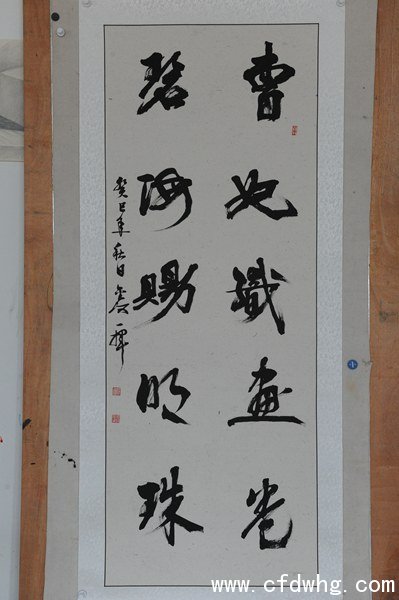 曹妃織畫卷
碧海賜明珠
癸巳年秋日
www.cfdwhg.com